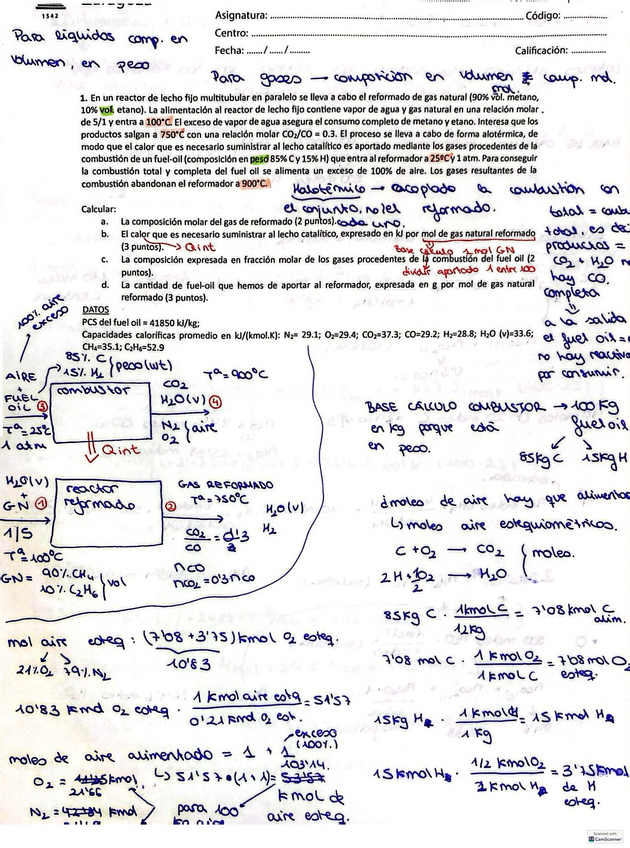 1542
Asignatura: Código:
Centro:
Fecha: ....../ ...../ ....... Calificación:
Para líquidos comp. en
volumen, en peso
Para gases → composición en volumen = comp. mol.
mol.
1. En un reactor de lecho fijo multitubular en paralelo se lleva a cabo el reformado de gas natural (90% vol. metano,
10% vol. etano). La alimentación al reactor de lecho fijo contiene vapor de agua y gas natural en una relación molar
de 5/1 y entra a 100°C. El exceso de vapor de agua asegura el consumo completo de metano y etano. Interesa que los
productos salgan a 750°C con una relación molar CO₂/CO = 0.3. El proceso se lleva a cabo de forma alotérmica, de
modo que el calor que es necesario suministrar al lecho catalítico es aportado mediante los gases procedentes de la
combustión de un fuel-oil (composición en peso 85% C y 15% H) que entra al reformador a 25°C y 1 atm. Para conseguir
la combustión total y completa del fuel oil se alimenta un exceso de 100% de aire. Los gases resultantes de la
combustión abandonan el reformador a 900°C.
Halotérmico → acoplado la combustión en
el conjunto, no el reformado.
Calcular:
a. La composición molar del gas de reformado (2 puntos). cada uno.
b. El calor que es necesario suministrar al lecho catalítico, expresado en kJ por mol de gas natural reformado
(3 puntos). → Qint
Base cálculo 1 mol GN
c. La composición expresada en fracción molar de los gases procedentes de la combustión del fuel oil (2
puntos).
dividir aportado 1 entre 100
d. La cantidad de fuel-oil que hemos de aportar al reformador, expresada en g por mol de gas natural
reformado (3 puntos).
total =
total, es de
productos =
CO₂ + H₂O
hay CO.
completa
a la salida
el fuel oil =
no hay reactivo
por consumir.
DATOS
PCS del fuel oil = 41850 kJ/kg;
Capacidades caloríficas promedio en kJ/(kmol.K): N₂= 29.1; O₂=29.4; CO₂=37.3; CO=29.2; H₂=28.8; H₂O (v)=33.6;
CH₄=35.1; C₂H₆=52.9
100% aire
exceso
85% C
15% H₂ peso (wt)
AIRE
+
FUEL
OIL ③
Tª = 25°C
1 atm
combustor
CO₂
H₂O (v) ④
N₂
O₂ aire
Tª = 900°C
Qint
H₂O(v)
+
GN ①
1/5
Tª = 100°C
reactor
reformado
②
GAS REFORMADO
Tª = 750°C
H₂O (v)
H₂
CO₂/CO = 0'3
nCO
nCO₂ = 0'3 nCO
GN = 90% CH₄
10% C₂H₆ vol
BASE CÁLCULO COMBUSTOR → 100 Kg
fuel oil
en kg porque está
en peso.
85 Kg C 15 Kg H
¿moles de aire hay que alimentar
↳ moles aire estequiométricos.
C + O₂ → CO₂
2H + 1/2 O₂ → H₂O
moles.
85 Kg C · 1 kmol C / 12 Kg = 7'08 kmol C
alim.
7'08 mol C · 1 Kmol O₂ / 1 kmol C = 7'08 mol O₂
esteq.
15 Kg H · 1 Kmol H / 1 Kg = 15 kmol H
15 Kmol H · 1/2 KmolO₂ / 2 Kmol H = 3'75 Kmol
de H
esteq.
mol aire esteq: (7'08 + 3'75) Kmol O₂ esteq.
21% O₂ 79% N₂
10'83
10'83 Kmol O₂ esteq · 1 Kmol aire esteq / 0'21 Kmol O₂ est. = 51'57
moles de aire alimentado = 1 + 1
exceso
(100%)
103'14.
↳ 51'57 · (1+1) =
kmol de
aire esteq.
O₂ = kmol
21'66
N₂ = kmol
para 100
Scanned with
CamScanner